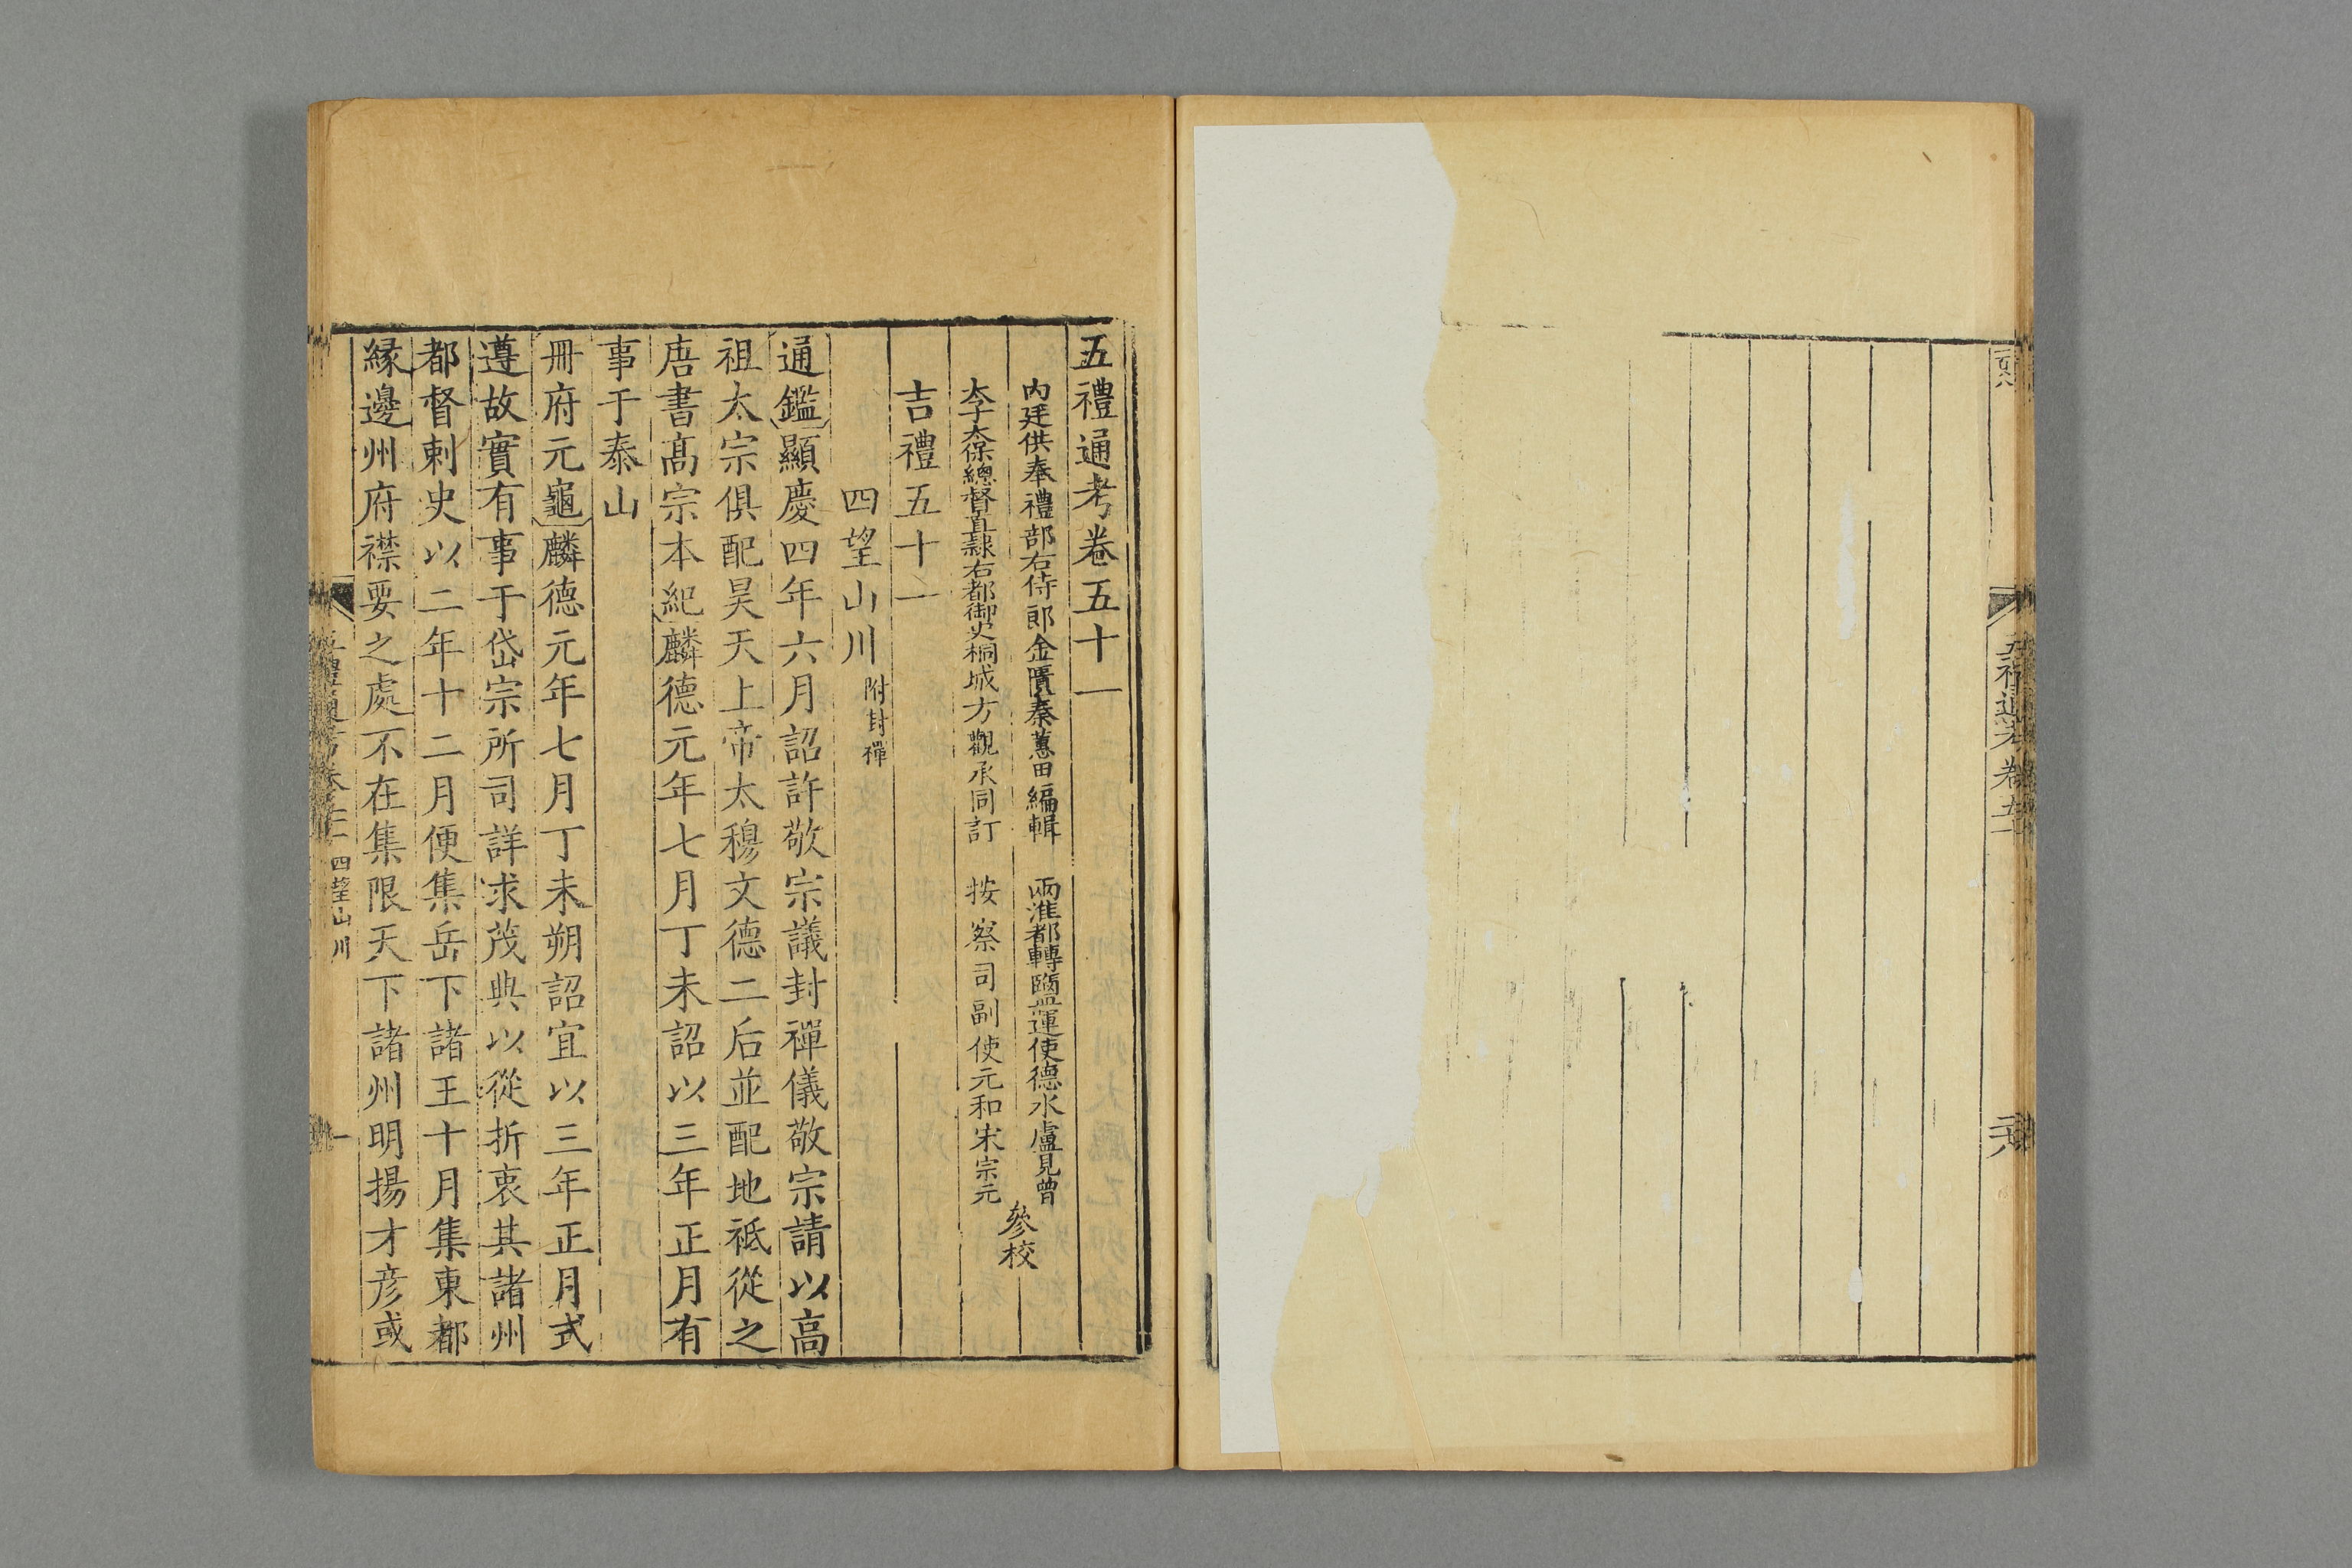 五禮通考卷五十一
內廷供奉禮部右侍郎金匱秦蕙田編輯 兩淮都轉鹽運使德水盧見曾
太子太保總督直隸右都御史桐城方觀承同訂 按察司副使元和宋宗元
參校
吉禮五十一
四望山川附封禪
通鑑顯慶四年六月詔許敬宗議封禪儀敬宗請以高
祖太宗俱配昊天上帝太穆文德二后並配地祇從之
唐書髙宗本紀麟德元年七月丁未詔以三年正月有
事于泰山
冊府元龜麟德元年七月丁未朔詔宜以三年正月式
遵故實有事于岱宗所司詳求茂典以從折衷其諸州
都督刺史以二年十二月便集岳下諸王十月集東都
緣邊州府襟要之處不在集限天下諸州明揚才彥或
四望山川
一